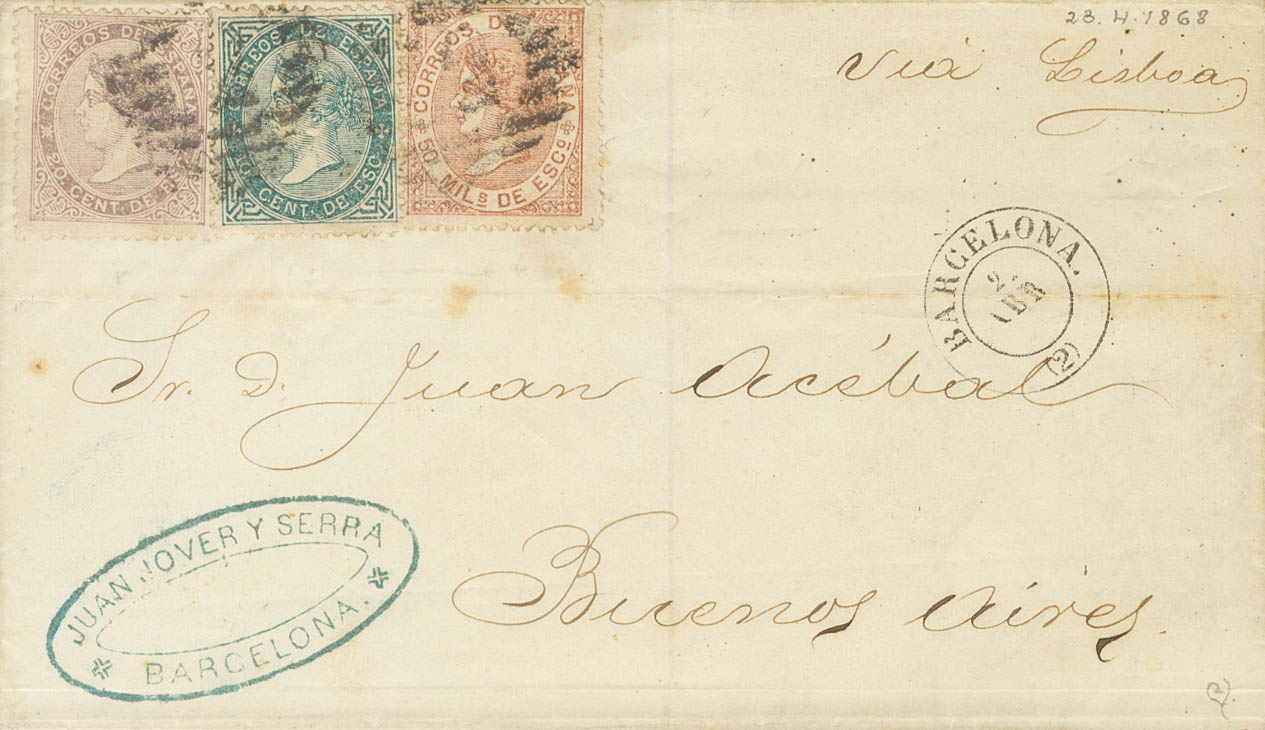 23.4.1868
Via Lisboa
CORREOS DE ESPAÑA
20 CENT. DE
CORREOS DE ESPAÑA
10 CENT. DE ESC.
CORREOS DE
50 MILS DE ESCO
BARCELONA.
ABR
(2)
Sr. D. Juan Acébal
Buenos Aires.
JUAN JOVER Y SERRA
BARCELONA.